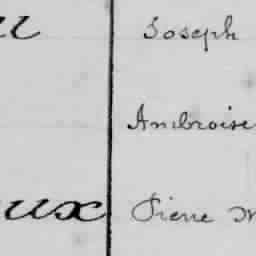 Joseph
Ambroise
ux Pierre